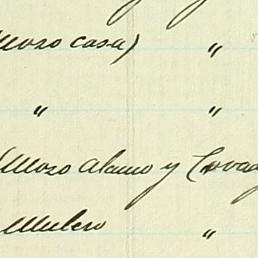 Mozo casa) "
" "
(Mozo Alamo y Covag
Mulero "